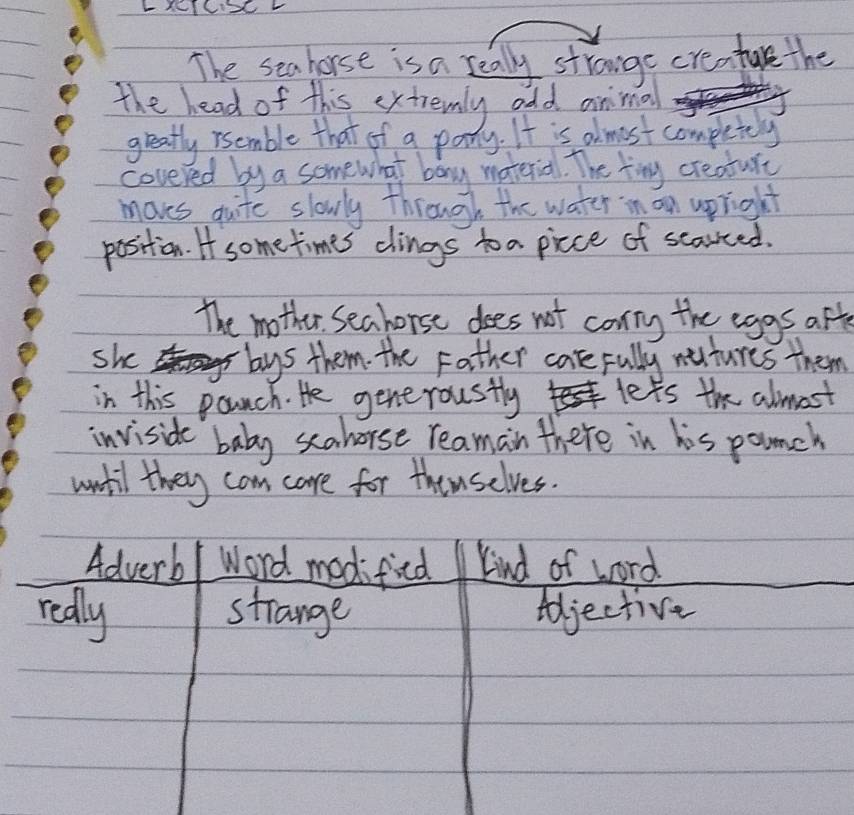 Exercise 2
The seahorse is a really strange creature the
the head of this extremly odd animal
greatly rsemble that of a pony. It is almost completely
covered by a somewhat bony material. The tiny creature
moves quite slowly through the water in an upright
position. It sometimes clings to a piece of seaweed.
The mother seahorse does not carry the eggs afte
she lays them. the Father carefully nutures them
in this pounch. He generoustly lets the almost
inviside baby seahorse reamain there in his pounch
until they can care for themselves.
Adverb Word modified Kind of word
really strange Adjective